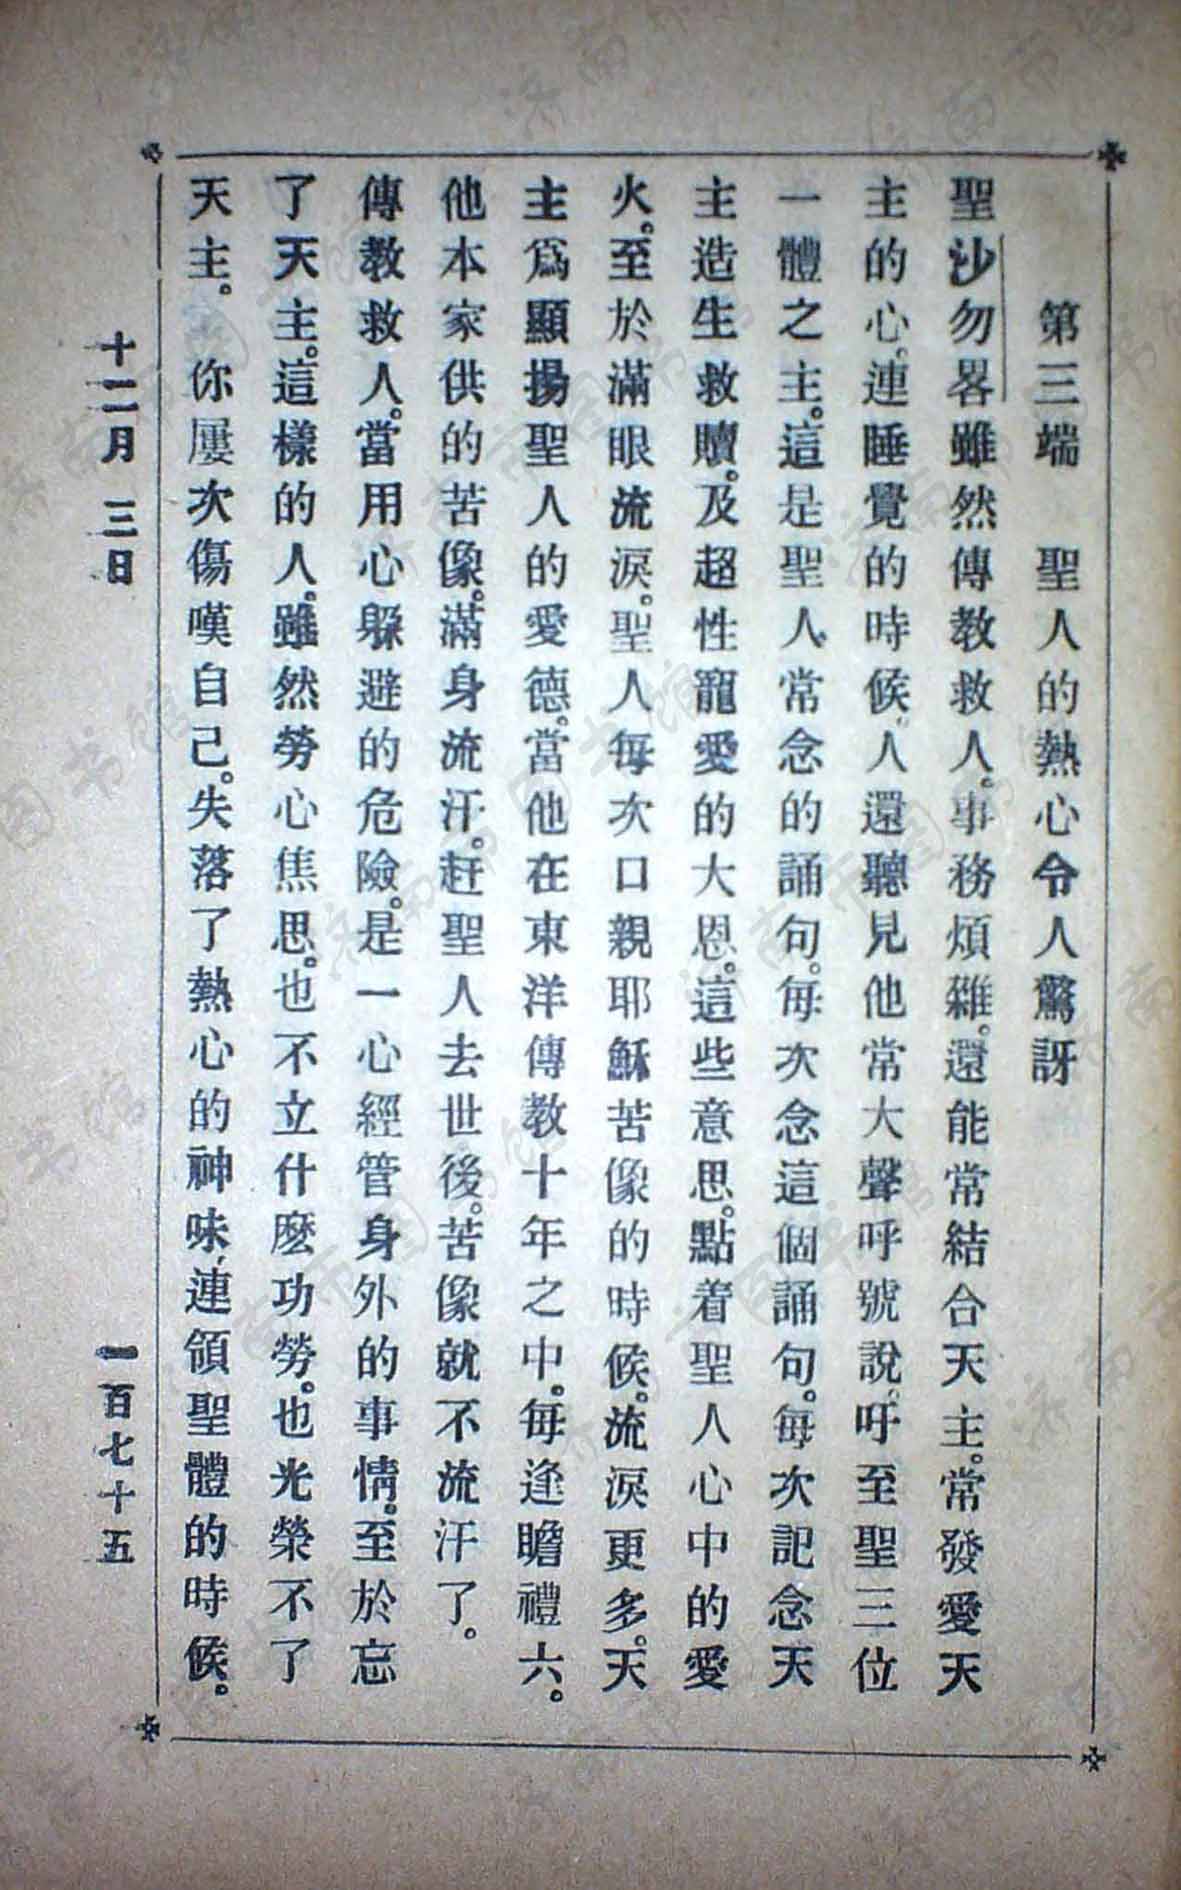 第三端　聖人的熱心令人驚訝
聖沙勿畧雖然傳教救人。事務煩雜。還能常結合天主。常發愛天
主的心。連睡覺的時候。人還聽見他常大聲呼號說。吁至聖三位
一體之主。這是聖人常念的誦句。每次念這個誦句。每次記念天
主造生救贖。及超性寵愛的大恩。這些意思。點着聖人心中的愛
火。至於滿眼流淚。聖人每次口親耶穌苦像的時候。流淚更多。天
主爲顯揚聖人的愛德。當他在東洋傳教十年之中。每逢瞻禮六。
他本家供的苦像。滿身流汗。赶聖人去世後。苦像就不流汗了。
傳教救人。當用心躲避的危險。是一心經管身外的事情。至於忘
了天主。這樣的人。雖然勞心焦思。也不立什麽功勞。也光榮不了
天主。　你屢次傷嘆自己。失落了熱心的神味、連領聖體的時候。
十二月　三日
一百七十五
济南市图书馆